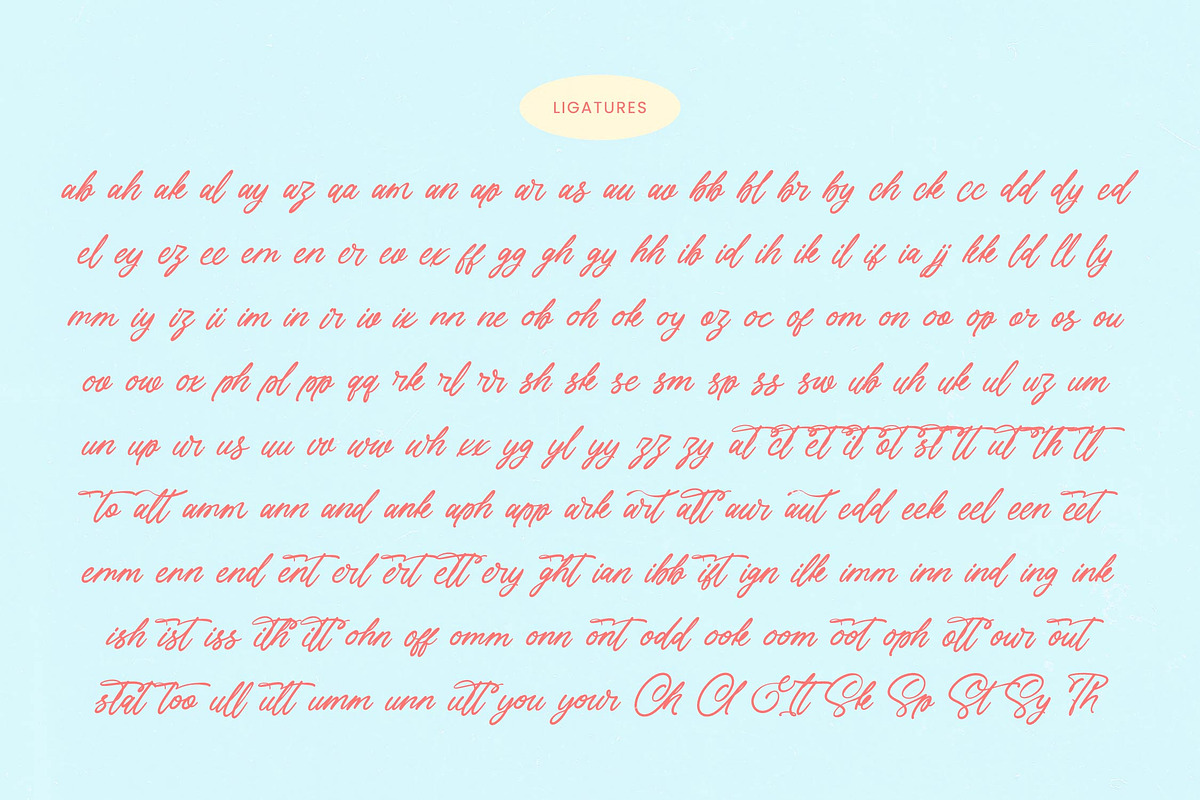 LIGATURES
ab ah ak al ay az aa am an ap ar as au av bb bl br by ch ck cc dd dy ed
el ey ez ee em en er ev ex ff gg gh gy hh ib id ih ik il if ia jj kk ld ll ly
mm iy iz ii im in ir iv ix nn ne ob oh ok oy oz oc of om on oo op or os ou
ov ow ox ph pl pp qq rk rl rr sh sk se sm sp ss sw ub uh uk ul uz um
un up ur us uu vv ww wh xx yg yl yy zz zy at ct et it ot st tt ut th lt
to alt amm ann and ank aph app ark art att aur aut edd eek eel een eet
emm enn end ent erl ert ett ery ght ian ibb ift ign ilk imm inn ind ing ink
ish ist iss ith itt ohn off omm onn ont odd ook oom oot oph ott our out
stat too ull ult umm unn utt you your Ch Cl Sk Sp St Sy Th